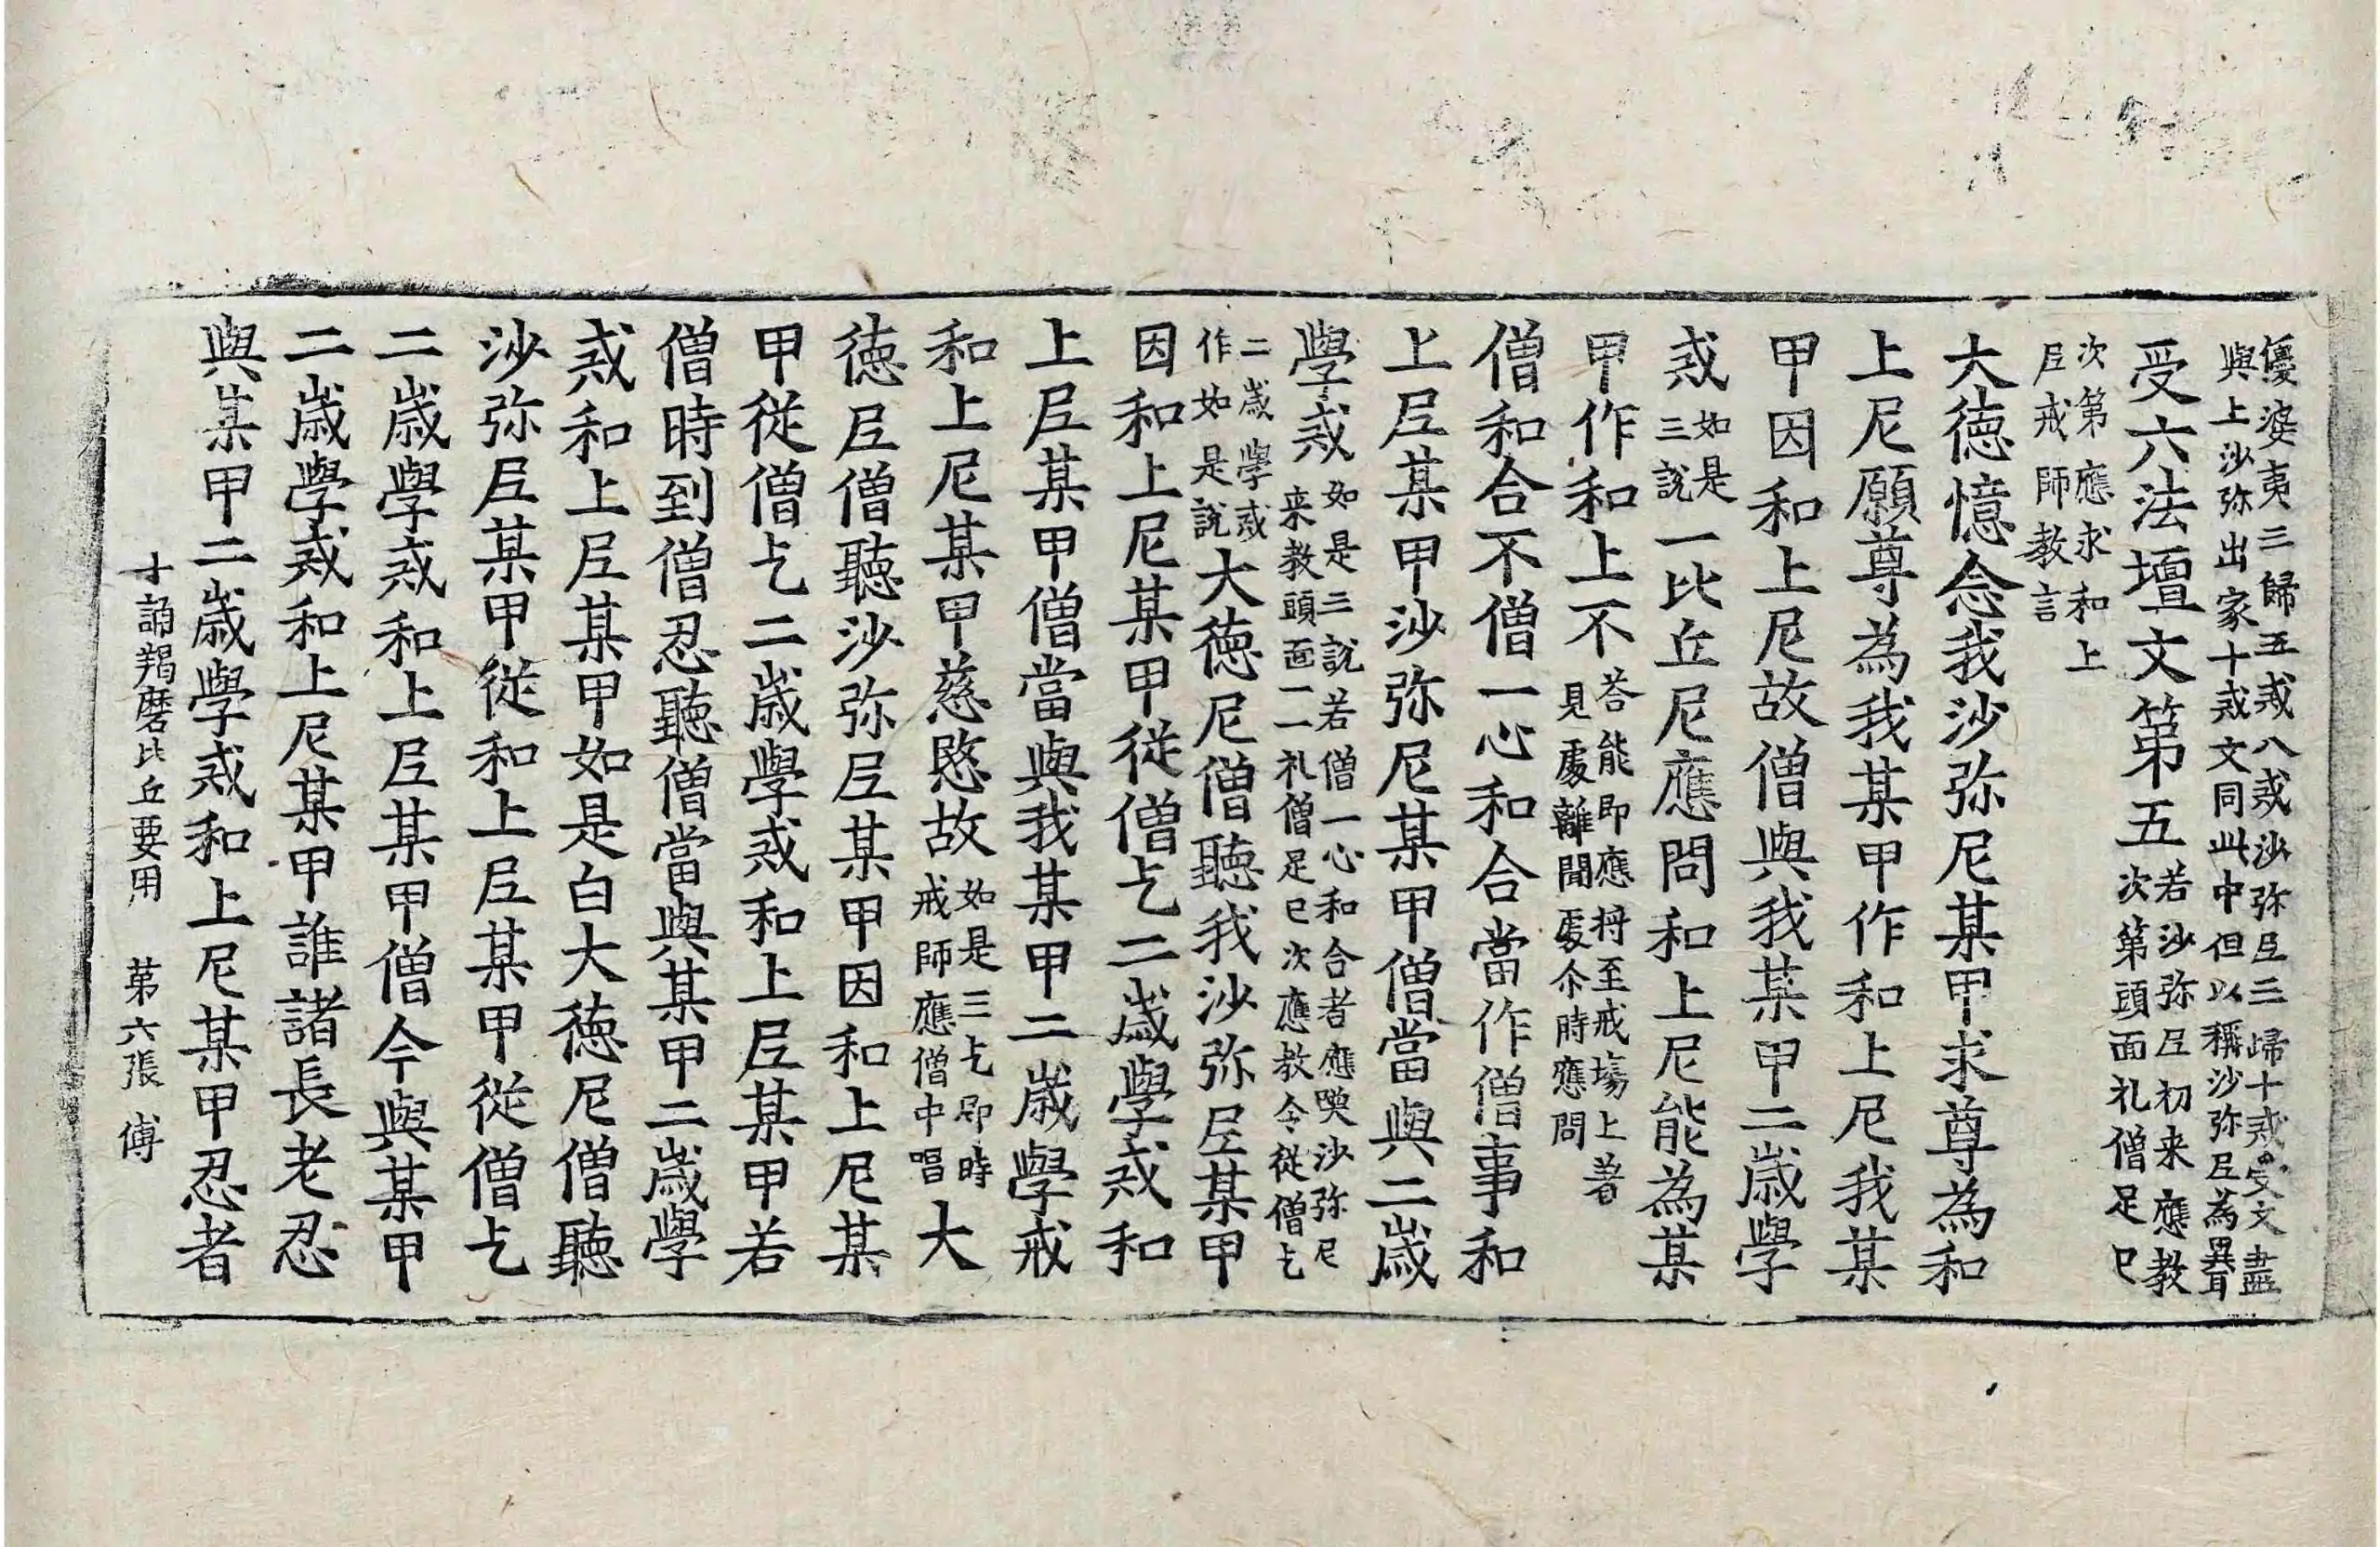 優婆夷三歸五戒八戒沙弥尼三歸十戒受文盡
與上沙弥出家十戒文同此中但以稱沙弥尼為異耳
受六法壇文第五若沙弥尼初来應教
次第頭面礼僧足已
次第應求和上
尼戒師教言
大徳憶念我沙弥尼某甲求尊為和
上尼願尊為我某甲作和上尼我某
甲因和上尼故僧與我某甲二歳學
戒如是
三説一比丘尼應問和上尼能為某
甲作和上不荅能即應将至戒場上著
見處離聞處尒時應問
僧和合不僧一心和合當作僧事和
上尼某甲沙弥尼某甲僧當與二歳
學戒如是三説若僧一心和合者應喚沙弥尼
来教頭面一一礼僧足已次應教令従僧乞
二歳學戒
作如是説大徳尼僧聽我沙弥尼某甲
因和上尼某甲従僧乞二歳學戒和
上尼某甲僧當與我某甲二歳學戒
和上尼某甲慈愍故如是三乞即時
戒師應僧中唱大
徳尼僧聽沙弥尼某甲因和上尼某
甲従僧乞二歳學戒和上尼某甲若
僧時到僧忍聽僧當與某甲二歳學
戒和上尼某甲如是白大徳尼僧聽
沙弥尼某甲従和上尼某甲従僧乞
二歳學戒和上尼某甲僧今與某甲
二歳學戒和上尼某甲誰諸長老忍
與某甲二歳學戒和上尼某甲忍者
十誦羯磨比丘要用　第六張　傅